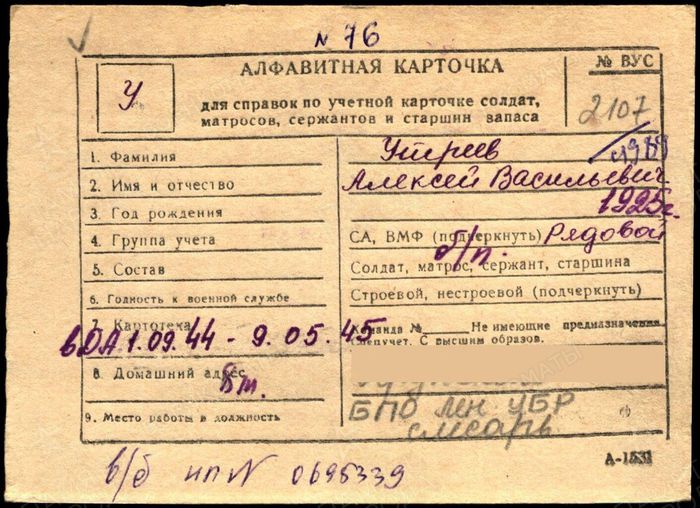 N 76
АЛФАВИТНАЯ КАРТОЧКА
№ ВУС
У
для справок по учетной карточке солдат,
матросов, сержантов и старшин запаса
2107
1. Фамилия
Утреев
2. Имя и отчество
Алексей Васильевич
3. Год рождения
1925г.
4. Группа учета
СА, ВМФ (подчеркнуть) Рядовой
б/п.
5. Состав
Солдат, матрос, сержант, старшина
6. Годность к военной службе
Строевой, нестроевой (подчеркнуть)
7. Картотека
Команда № Не имеющие предназначения
вДА 1.09.44 - 9.05.45
Спецучет. С высшим образов.
8. Домашний адрес
9. Место работы и должность
БПО Лен УБР
слесарь
А-1531
в/б нп N 0695339